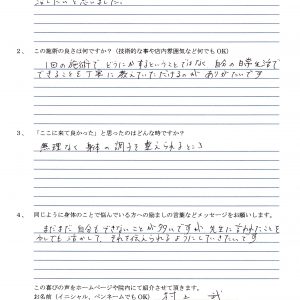 治したいと思いました。
2、この施術の良さは何ですか?(技術的な事や店内雰囲気など何でもOK)
1回の施術で どうにかするということではなく 自分の日常生活で
できることを丁寧に教えていただけるのが ありがたいです
3、「ここに来て良かった」と思ったのはどんな時ですか?
無理なく 身体の調子を整えられるところ
4、同じように身体のことで悩んでいる方への励ましの言葉などメッセージをお願いします。
まだまだ自分もできないことが多いですが 先生に言われたことを
少しでも活かして、それを伝えられるようにしていきたいです
この喜びの声をホームページや院内にて紹介させて頂きます。
お名前(イニシャル、ペンネームでもOK) 村上 武